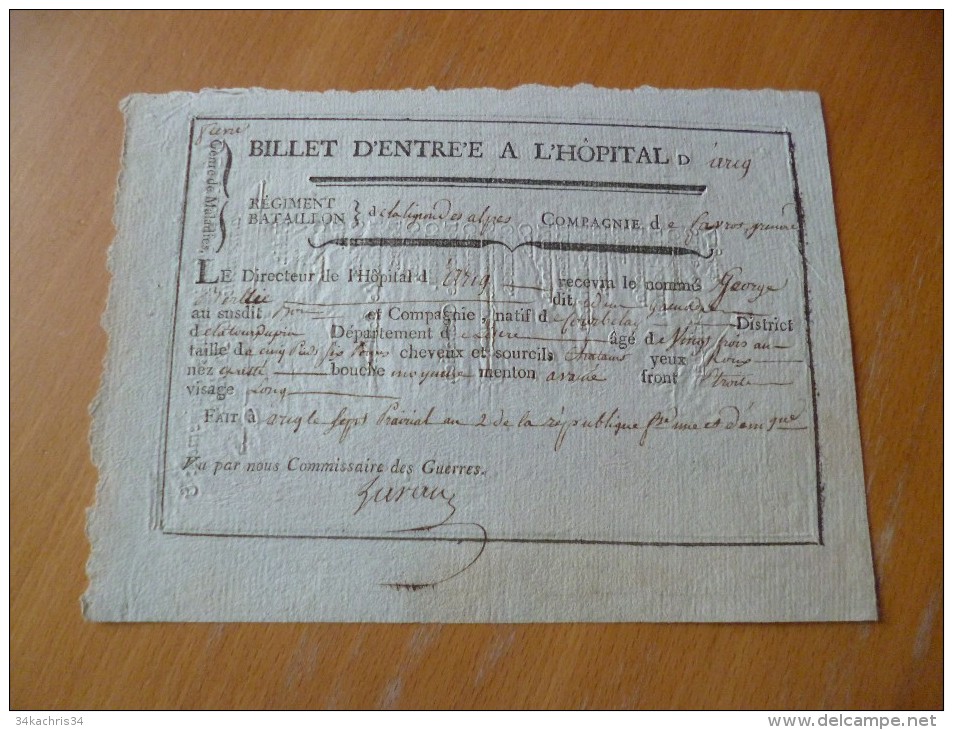 fievre
Genre de Maladies.
BILLET D'ENTRE'E A L'HÔPITAL D arcq
RÉGIMENT
BATAILLON } d e la légion des alpes COMPAGNIE d e
LE Directeur de l'Hôpital d' arcq recevra le nommé George
dit
au susdit Bon et Compagnie, natif d e District
d e latour dupin Département d e lisere âgé d e Vingt trois ans
taille d e cinq Pieds six Pouces cheveux et sourcils chatains yeux Roux
nez bouche moyenne menton front Etroite
visage Long
FAIT à arcq le sept Prairial an 2 de la république fse une et démque
Vu par nous Commissaire des Guerres.
34kachris34
www.delcampe.net